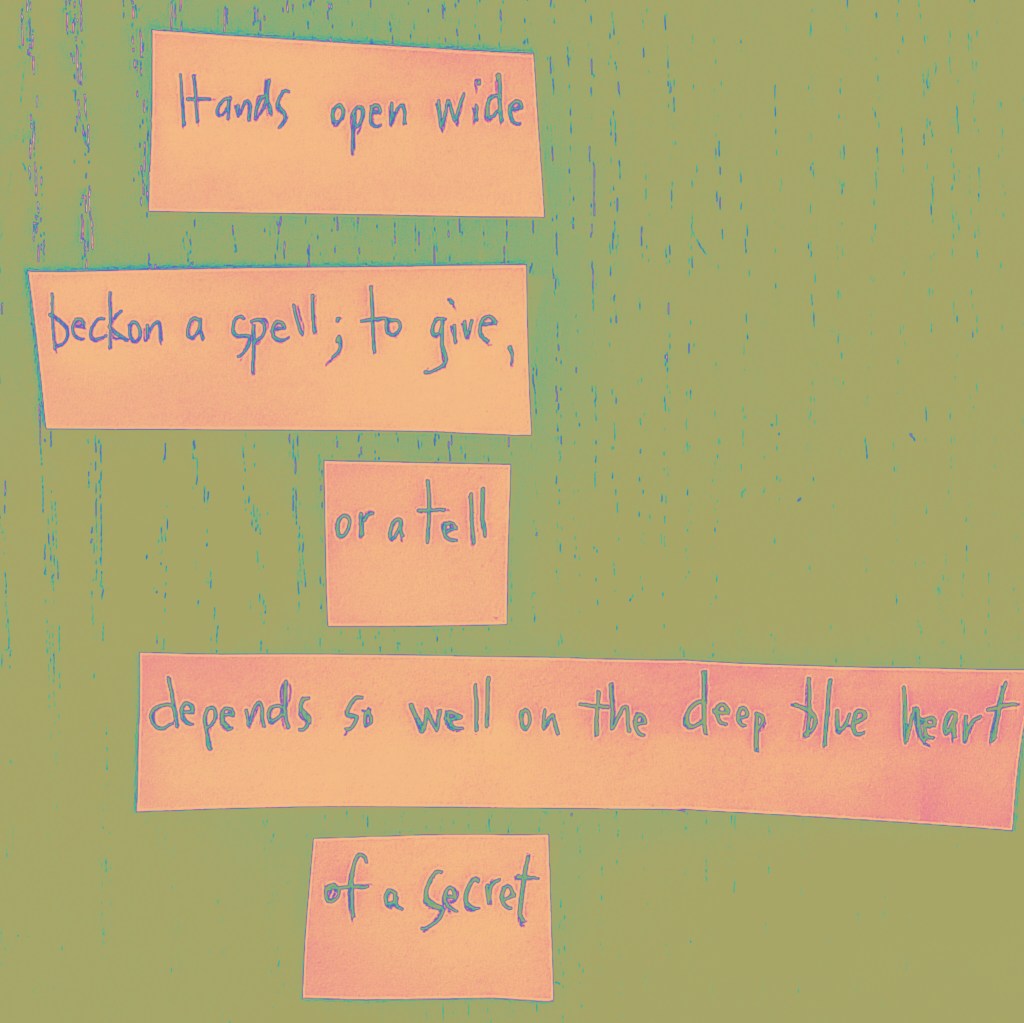 Hands open wide
beckon a spell; to give,
or a tell
depends so well on the deep blue heart
of a secret